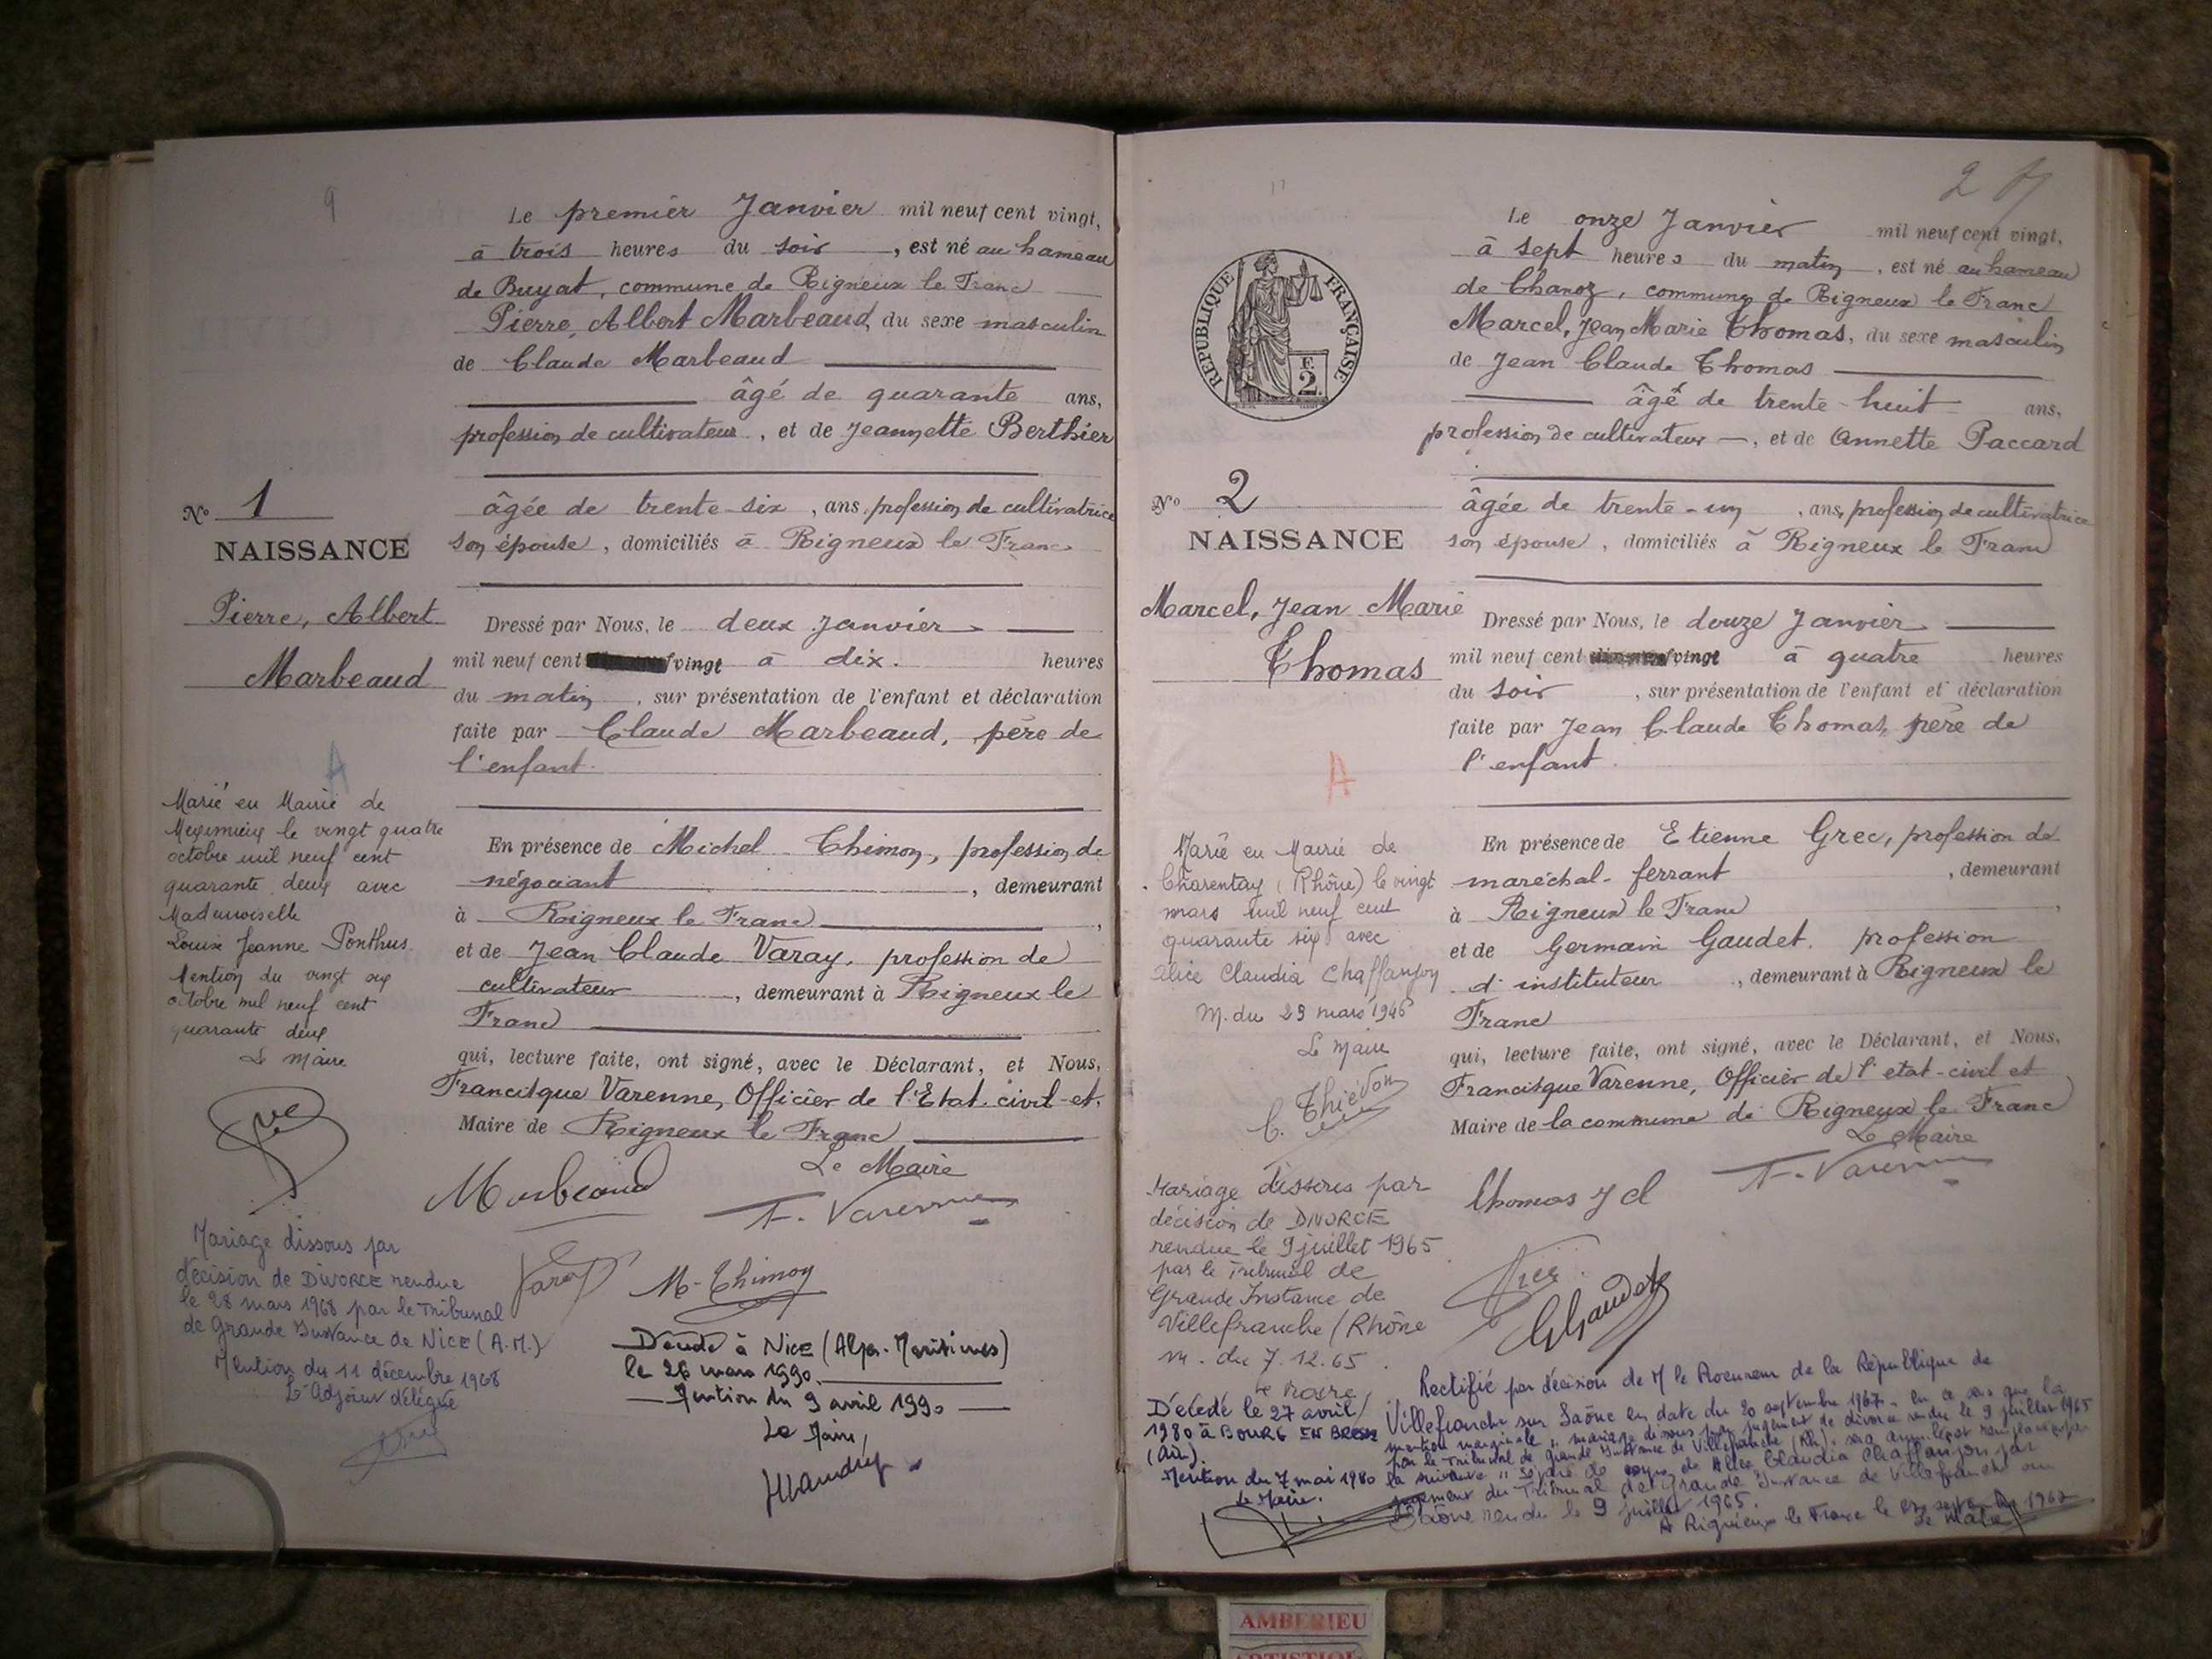 9
Le premier Janvier mil neuf cent vingt,
à trois heures du soir, est né au hameau
de Buyat, commune de Rigneux le Franc
Pierre, Albert Marbeaud, du sexe masculin
de Claude Marbeaud
âgé de quarante ans,
profession de cultivateur, et de Jeannette Berthier
âgée de trente-six, ans, profession de cultivatrice
son épouse, domiciliés à Rigneux le Franc
No 1
NAISSANCE
Pierre, Albert
Marbeaud
Dressé par Nous, le deux Janvier
mil neuf cent vingt à dix heures
du matin, sur présentation de l'enfant et déclaration
faite par Claude Marbeaud, père de
l'enfant
En présence de Michel Thimon, profession de
négociant, demeurant
à Rigneux le Franc,
et de Jean Claude Varay, profession de
cultivateur, demeurant à Rigneux le
Franc
qui, lecture faite, ont signé, avec le Déclarant, et Nous,
Francisque Varenne, Officier de l'Etat civil et
Maire de Rigneux le Franc
Le Maire
Marbeaud
F. Varenne
Varay
M. Thimon
A
Marié en Mairie de
Meximieux le vingt quatre
octobre mil neuf cent
quarante deux avec
Mademoiselle
Louise Jeanne Ponthus
Mention du vingt six
octobre mil neuf cent
quarante deux
Le Maire
Mariage dissous par
décision de DIVORCE rendue
le 28 mars 1968 par le Tribunal
de Grande Instance de NICE (A.M.)
Mention du 11 décembre 1968
L'Adjoint délégué
Décédé à NICE (Alpes-Maritimes)
le 26 mars 1990.
Mention du 9 avril 1990
Le Maire,
2
Le onze Janvier mil neuf cent vingt,
à sept heures du matin, est né au hameau
de Chanoz, commune de Rigneux le Franc
Marcel, Jean Marie Thomas, du sexe masculin
de Jean Claude Thomas
âgé de trente-huit ans,
profession de cultivateur, et de Annette Paccard
âgée de trente-un, ans, profession de cultivatrice
son épouse, domiciliés à Rigneux le Franc
RÉPUBLIQUE FRANÇAISE
E.
2.
No 2
NAISSANCE
Marcel, Jean Marie
Thomas
Dressé par Nous, le douze Janvier
mil neuf cent vingt à quatre heures
du soir, sur présentation de l'enfant et déclaration
faite par Jean Claude Thomas, père de
l'enfant.
En présence de Etienne Grec, profession de
maréchal-ferrant, demeurant
à Rigneux le Franc,
et de Germain Gaudet, profession
d'instituteur, demeurant à Rigneux le
Franc
qui, lecture faite, ont signé, avec le Déclarant, et Nous,
Francisque Varenne, Officier de l'etat-civil et
Maire de la commune de Rigneux le Franc
Le Maire
F. Varenne
Thomas J Cl
GGaudet
A
Marié en Mairie de
Charentay (Rhône) le vingt
mars mil neuf cent
quarante six avec
Alice Claudia Chaffanjon
M. du 29 mars 1946
Le Maire
C. Thiévon
Mariage dissous par
décision de DIVORCE
rendue le 9 juillet 1965
par le Tribunal de
Grande Instance de
Villefranche/Rhône
m. du 7.12.65.
Le Maire
Décédé le 27 avril
1980 à BOURG EN BRESSE
(Ain).
Mention du 7 mai 1980
Le Maire.
Rectifié par décision de M le Procureur de la République de
Villefranche sur Saône en date du 20 septembre 1967 en ce sens que la
mention marginale "mariage dissous par jugement de divorce rendu le 9 juillet 1965
par le Tribunal de Grande Instance de Villefranche (Rh)" sera annulée et remplacée par
la suivante "séparé de corps de Alice Claudia Chaffanjon par
jugement du Tribunal de Grande Instance de Villefranche sur
Saône rendu le 9 juillet 1965.
A Rigneux le Franc le septembre 1967
Le Maire
AMBERIEU